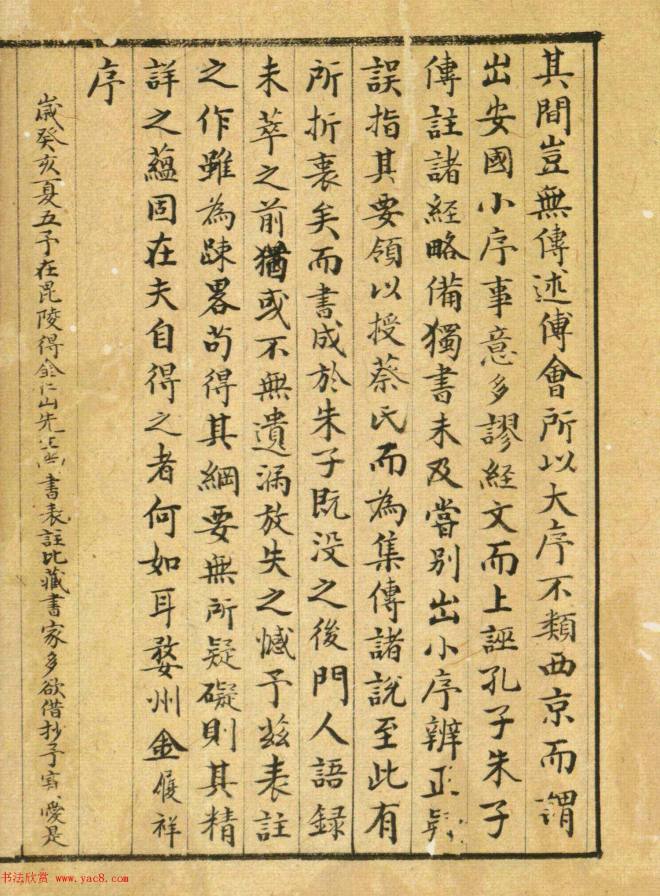 其間豈無傳述傅會所以大序不類西京而謂
出安國小序事意多謬經文而上誣孔子朱子
傳註諸經略備獨書未及嘗別出小序辨正
誤指其要領以授蔡氏而為集傳諸說至此有
所折衷矣而書成於朱子既没之後門人語録
未萃之前猶或不無遺漏放失之憾予兹表註
之作雖為踈畧苟得其綱要無所疑礙則其精
詳之藴固在夫自得之者何如耳婺州金履祥
序
歲癸亥夏五予在毘陵得金仁山先生尚書表註比藏書家多欲借抄予寔愛是
书法欣赏 www.yac8.com